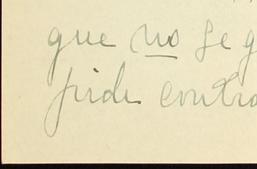 que no se g
pide contra